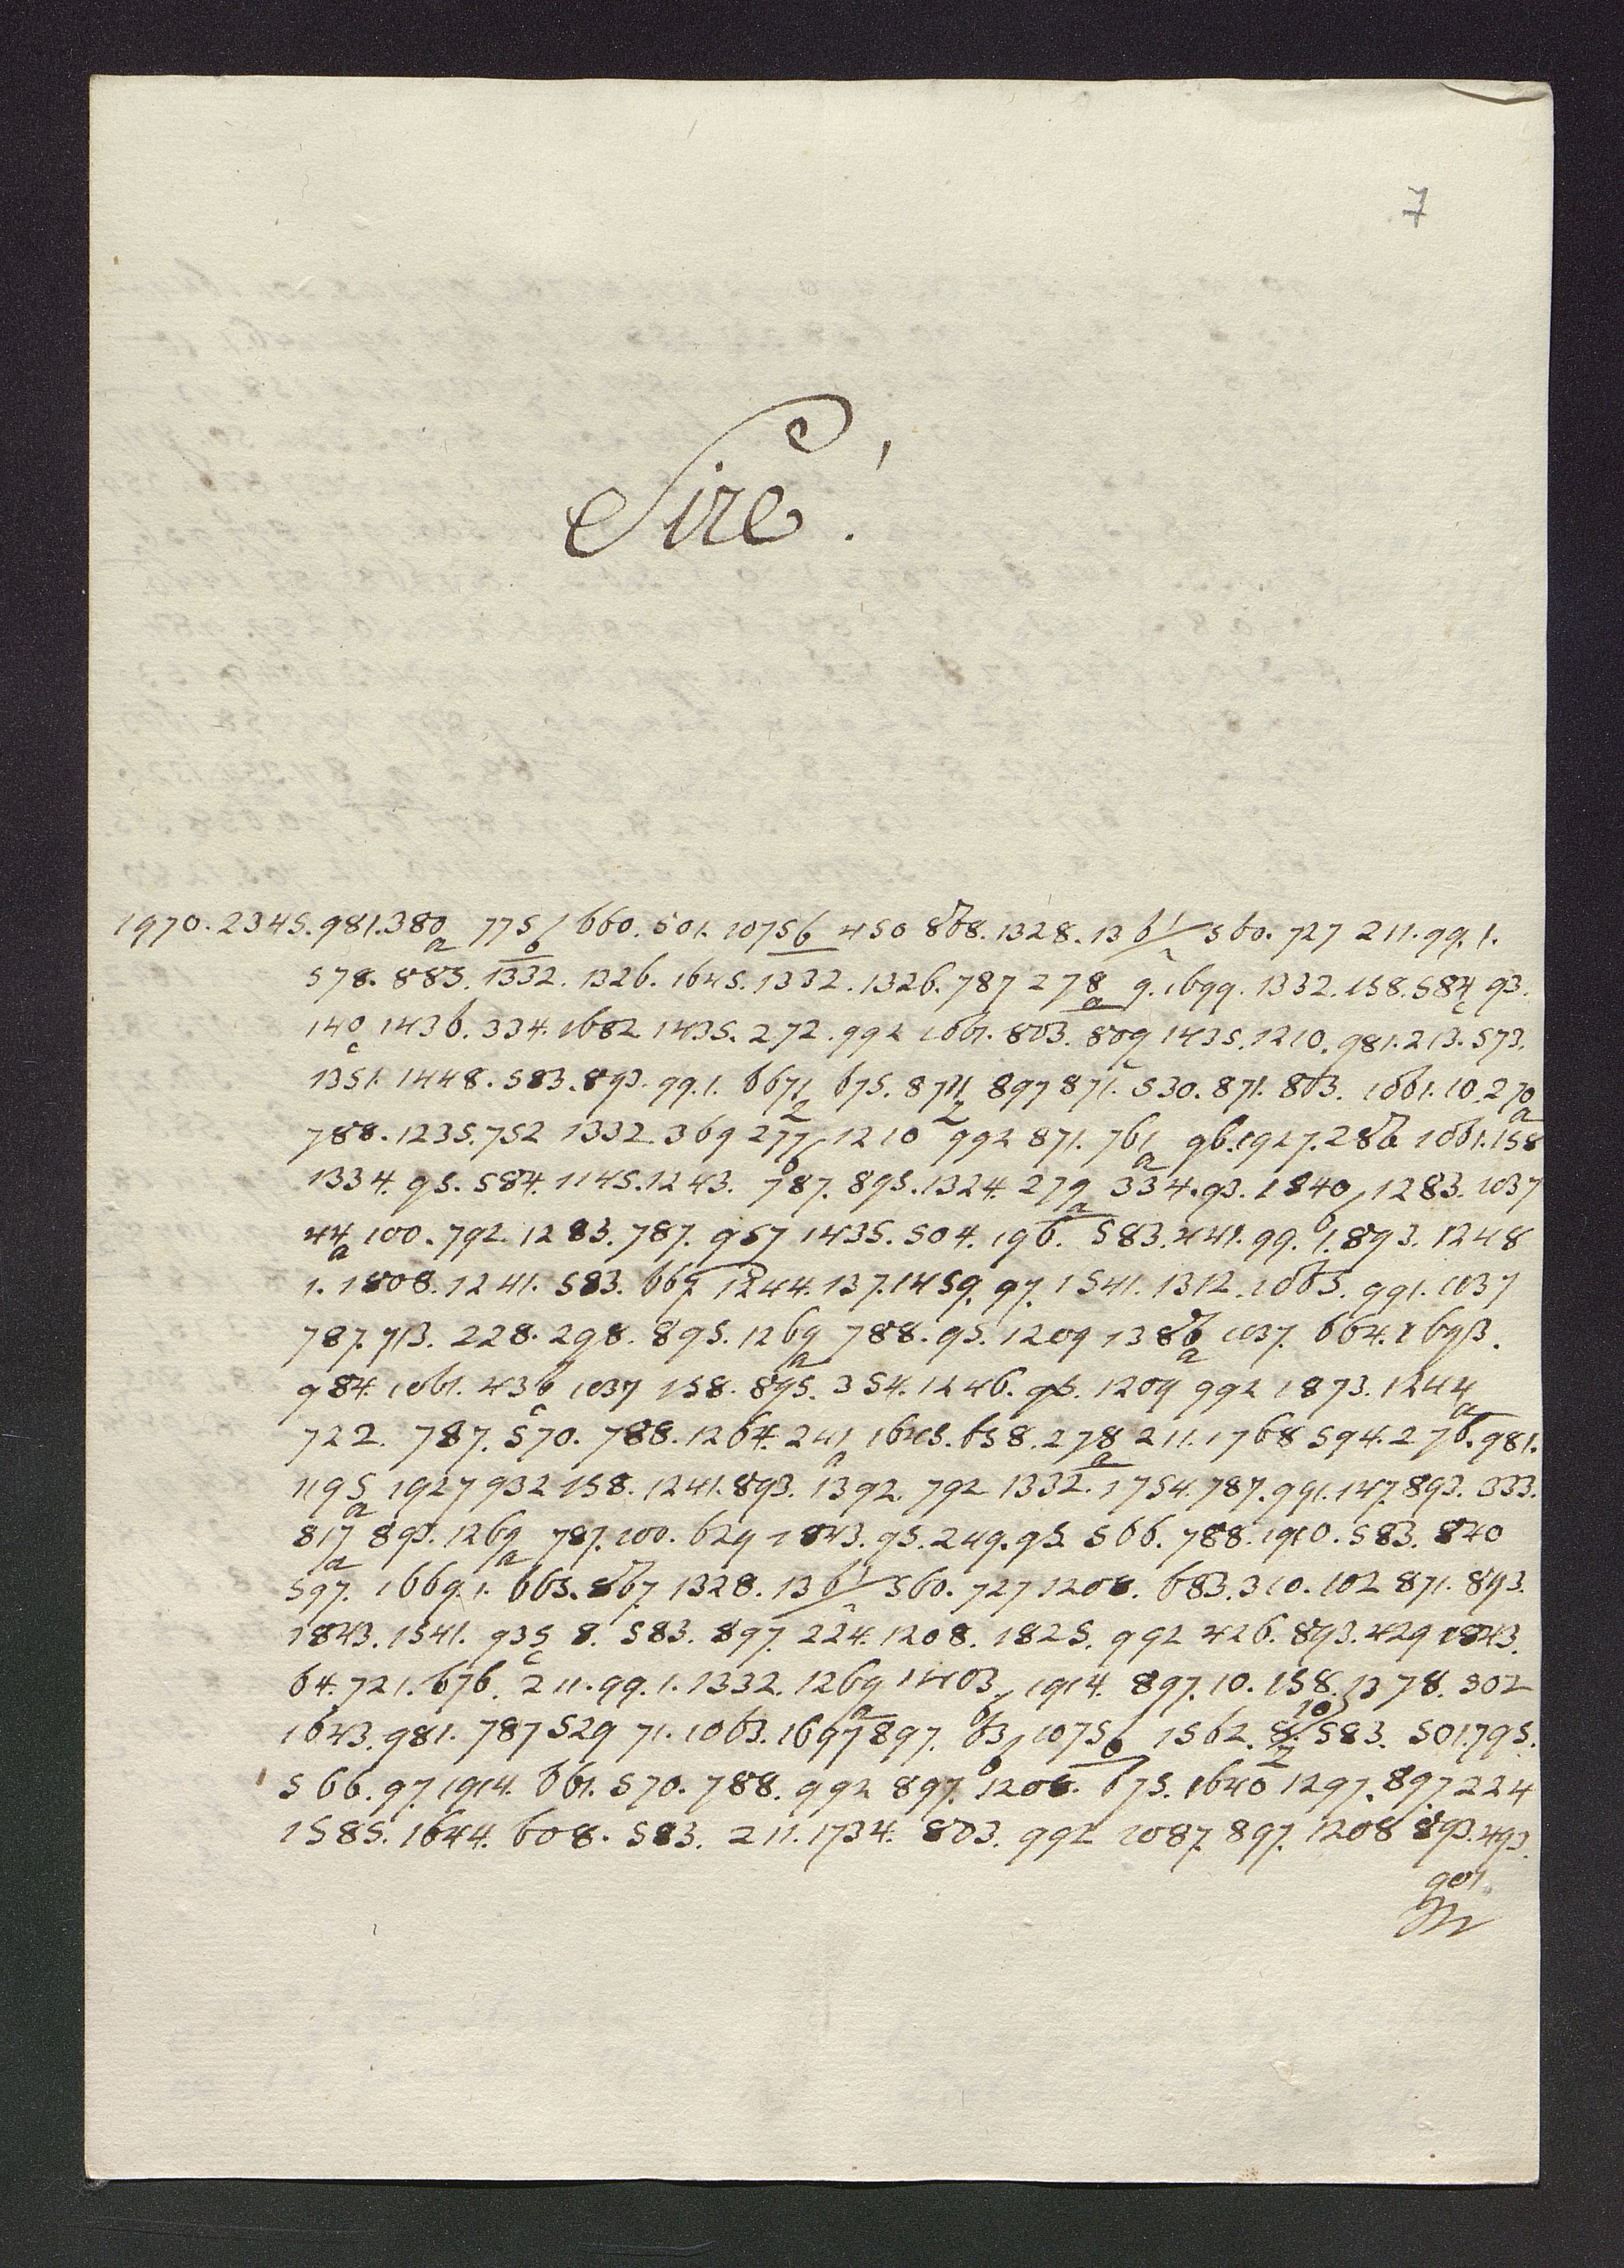 7
Sire!
1970. 2345. 981. 380a 775b/ 660. 501. 10756 450 868. 1328. 1361/2 360. 727 211. 99. 1.
578. 883. 1332. 1326. 1645. 1332. 1326. 787 278a 9. 1699. 1332. 158. 584c 93.
140c 1436. 334. 1682 1435. 272. 992 1061. 803. 809c 1435. 1210. 981. 213. 573.
1351. 1448. 583. 893. 99. 1. 6671/2 675. 8711/2 897 871. 530. 871. 863. 1061. 10. 270a
788. 1235. 752 1332 369 277/b 1210 992 871. 761a 96. 1927. 286 1061. 158
1334. 95. 584. 1145. 1243. 787. 895. 1324. 279a 334. 93. 1840/b 1283. 1037
44a 100. 792. 1283. 787. 957 1435. 504. 196. 583. 441. 99. 1. 893. 1248
1. 1808. 1241. 583. 669 1244. 137. 1459. 97. 1541. 1312. 1065. 991. 1037
787. 713. 228. 298. 895. 1269a 788. 95. 1209 1386a 1037. 664. 1693.
984. 1061. 436c 1037 158. 895. 354. 1246. 95. 1209 992 1873. 1244a
722. 787. 570. 788. 1264. 241a 1645. 658. 278a 211. 1768 594. 276. 981.
1195a 1927 932 158. 1241. 893. 1392. 792 1332. 1754. 787. 991. 147. 893. 333.
817a 893. 1269a 787. 100. 629 1843. 95. 249. 95. 566. 788. 1910. 583. 840
597. 1669. 1. 663. 867. 1328. 1361/2 360. 727 1208. 683. 310. 102 871. 893.
1843. 1541. 935c 8. 583. 897. 224. 1208. 1825. 992 426. 893. 429 1843.
64. 721. 676. 211. 99. 1. 1332. 1269a 1403/b 1914. 897. 10. 158. 1378. 302
1643. 981. 787 529 71. 1063. 1697 897. 63/b 10756 1562. 583. 501. 795.
566. 97. 1914. 661. 570. 788. 992 897. 1208. 675. 1640 1297. 897. 224
1585. 1644. 608. 583. 211. 1734. 803. 992 1087. 897. 1208 893. 493.
901